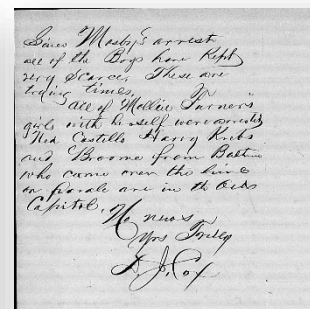 Since Mosby's arrest
all of the Boys have Kept
very Scarce, These are
trying times.
All of Mollie Turner's
girls with himself were arrested
Ned Costello Harry Krebs
and Broome from Baltim
who came over the line
on parole are in the
Capitol,
No news
Yrs Truly
D. J. Cox